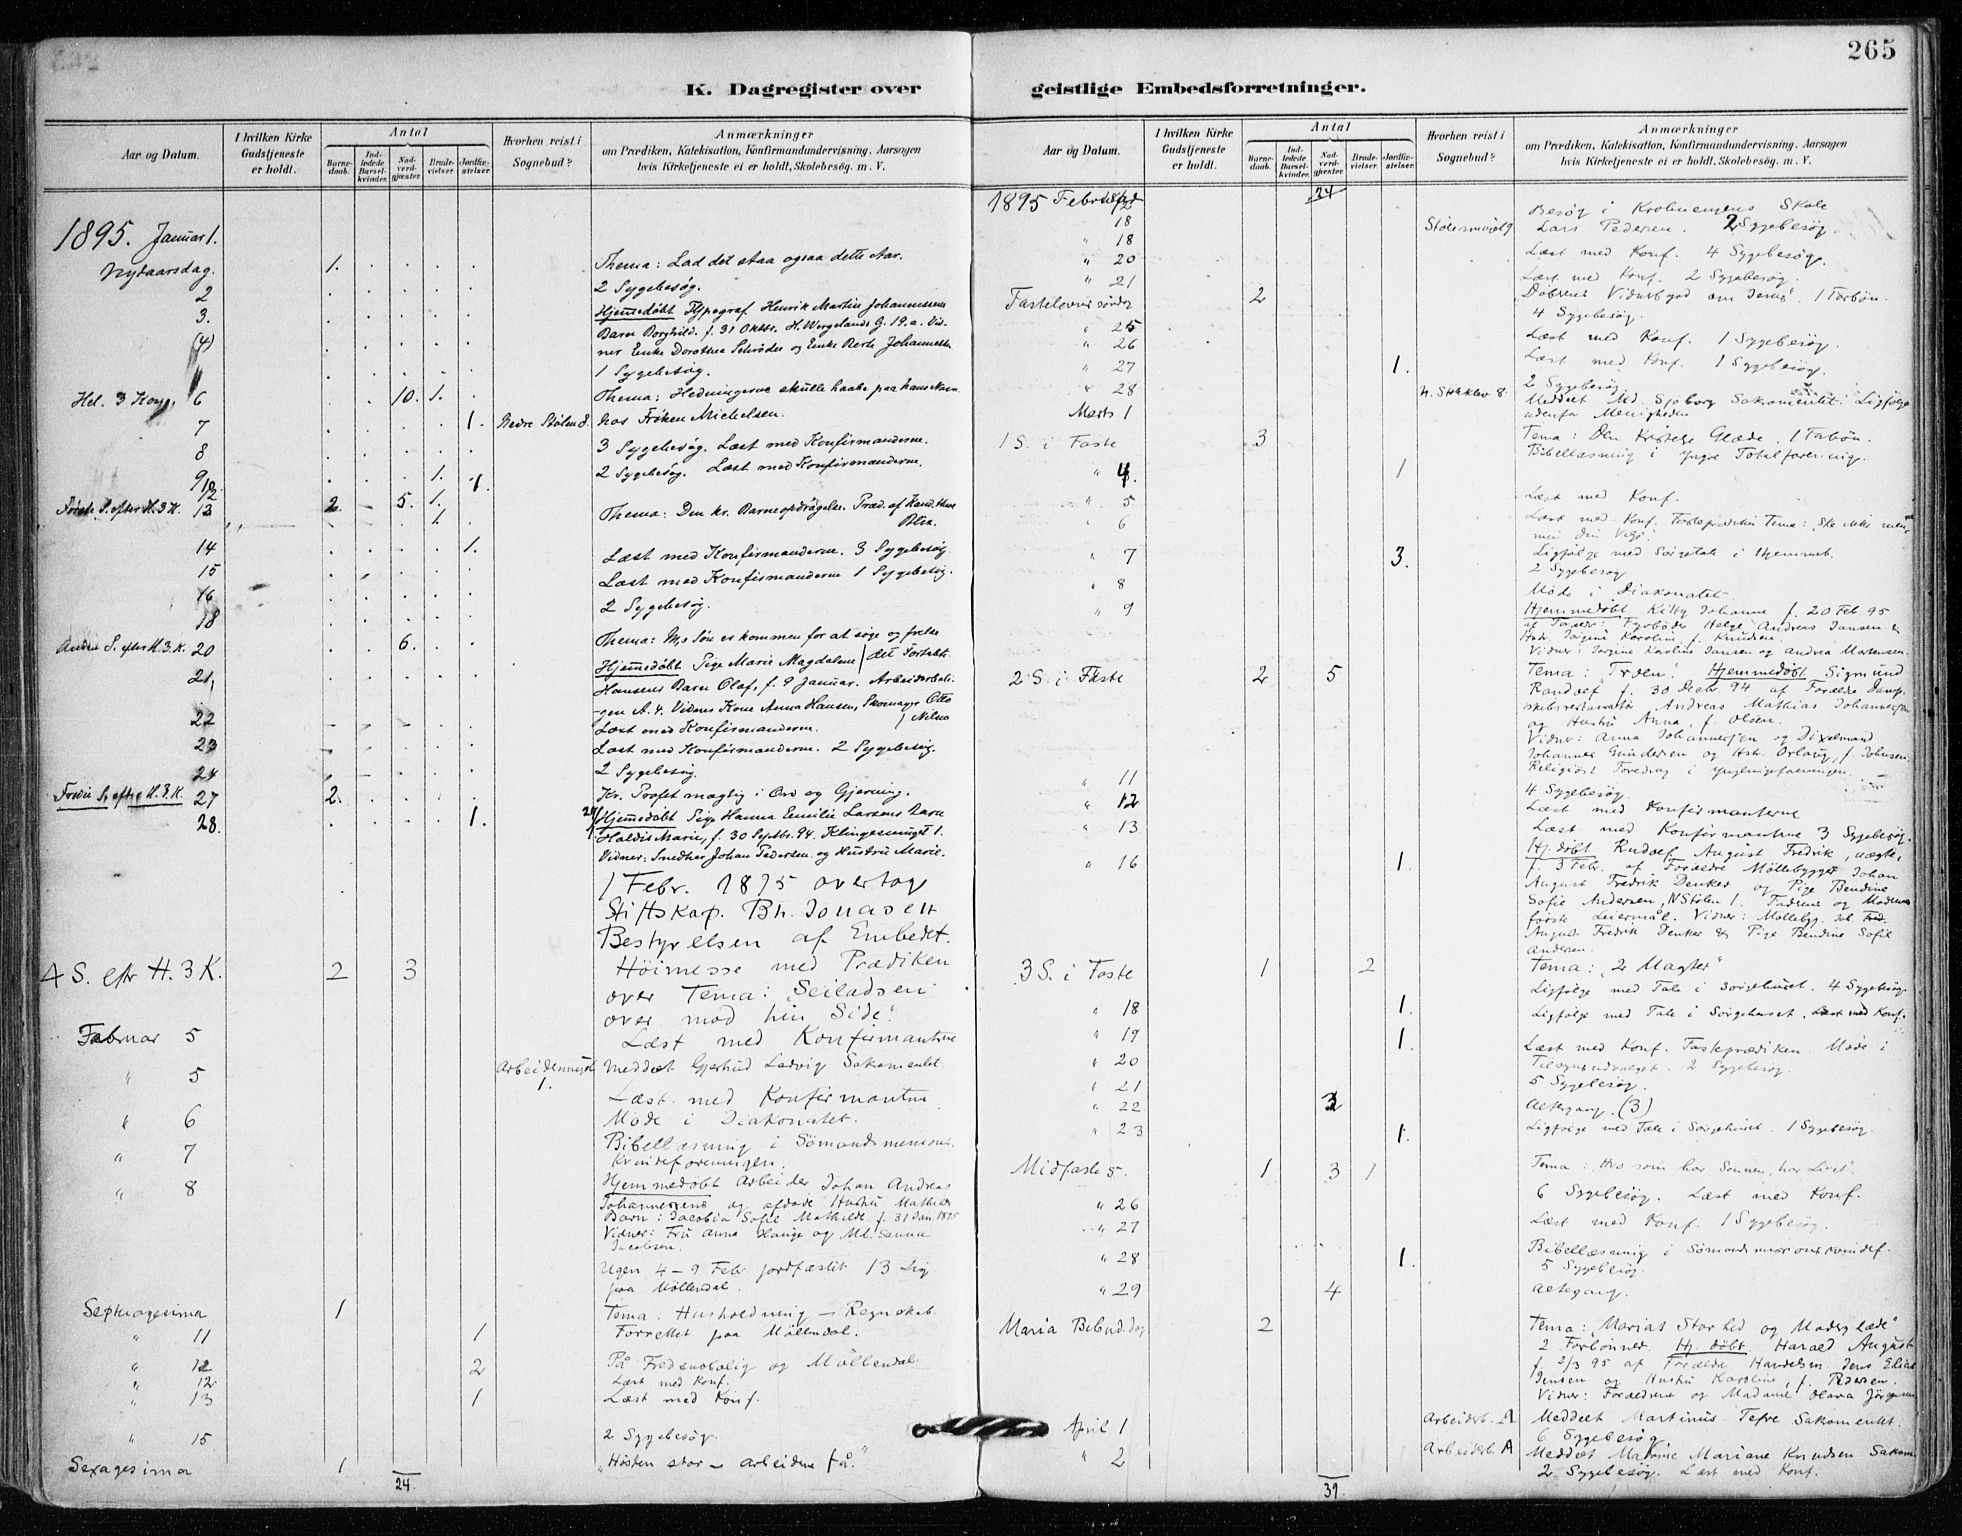 265
K. Dagregister over
Aar og Datum.
I hvilken Kirke Gudstjeneste er holdt.
Antal
Barnedaab.
Indledede Barselkvinder.
Nadverdgjæster.
Brudevielser.
Jordfæstelser.
Hvorhen reist i Sognebud?
Anmærkninger
om Prædiken, Katekisation, Konfirmandundervisning, Aarsagen
hvis Kirketjeneste ei er holdt, Skolebesøg. m. V.
1895. Januar 1.
Nytaarsdag. 1. Thema: Lad det staa ogsaa dette Aar.
2 2 Sygebesøg.
3. Hjemmedøbt Typograf Henrik Martin Johannessens
(4) Barn Borghild. f. 31 Oktbr. H. Wergelands G. 19.a. Vid-
ner Enke Dorothea Schrøder og Enke Berte Johannessen
1 Sygebesøg.
Hel. 3 Kong. 6 10. 1. Thema: Hedningerne skulle haabe paa hans Navn.
7 1. Nedre Stølen 8. hos Frøken Michelsen.
8 3 Sygebesøg. Læst med Konfirmanderne.
9 1. 2 Sygebesøg. Læst med Konfirmanderne.
12 1.
Første S. efter H. 3 K. 13 2. 5. 1. Thema: Den kr. Barneopdragelse. Præd. af Kand.
1. Blix.
14 1. Læst med Konfirmanderne. 3 Sygebesøg
15 Læst med Konfirmanderne 1 Sygebesøg.
16 2 Sygebesøg.
18
Anden S. efter H. 3. K. 20 6. Thema: Ms Søn er kommen for at søge og frelse
det Fortabte
21, Hjemmedøbt Pige Marie Magdalene
Hansens Barn Olaf, f. 9 Januar. Arbeiderboli-
gen A. 4. Vidner Kone Anna Hansen, Skomager Otto
Nilsen
22 Læst med Konfirmanderne.
23 Læst med Konfirmanderne. 2 Sygebesøg.
24 2 Sygebesøg.
Tredie S. efter H. 3. K. 27 2. Kr. Profet mægtig i Ord og Gjerning.
28. 1. Hjemmedøbt Pige Hanna Emilie Larsens Barn
Haldis Marie, f. 30 Septbr. 94. Klingesmuget 1.
Vidner: Snedker Johan Pedersen og Hustru Marie.
1 Febr. 1895 overtog
Stiftskap. Bh. Jonasen
Bestyrelsen af Embedet.
4 S. eftr H. 3 K. 2 3 Høimesse med Prædiken
over Tema: „Seiladsen
over mod hin Side".
Februar 5 Læst med Konfirmantrne
" 5 1. Meddelt Gjerhud Ladvig Sakamentet.
Læst med Konfirmantrne
" 6 Møde i Diakonatet.
" 7 Bibellæsning i Sømandsmissions-
kvindeforeningen.
" 8 Hjemmedøbt Arbeider Johan Andreas
Johannessens og afdøde Hustru Mathildes
Barn: Jacobia Sofie Mathilde f. 31 Jan. 1895
Vidner: Fru Anna Hauge og Md. Sanna
Jacobsen.
Ugen 4 – 9 Febr. jordfæstet 13 Lig
paa Møllendal.
Septuagesima 1 Tema: Husholdning – Regnskab.
" 11 1 Forrettet paa Møllendal.
" 12 2 På Fredensbolig og Møllendal
" 12 Læst med Konf.
" 13 1 Læst med Konf.
" 15 2 Sygebesøg.
Sexagesima 1 „Høsten stor – arbeiderne få."
24.
geistlige Embedsforretninger.
Aar og Datum.
I hvilken Kirke Gudstjeneste er holdt.
Antal
Barnedaab.
Indledede Barselkvinder.
Nadverdgjæster.
Brudevielser.
Jordfæstelser.
Hvorhen reist i Sognebud?
Anmærkninger
om Prædiken, Katekisation, Konfirmandundervisning, Aarsagen
hvis Kirketjeneste ei er holdt, Skolebesøg. m. V.
24
1895 Februar
18 Besøg i Krohnengens Skole
" 18 Lars Pedersen. 2 Sygebesøg.
" 20 Læst med Konf. 4 Sygebesøg.
" 21 Læst med Konf. 2 Sygebesøg
Fastelavns søndag 2 Døbrens Vidnesbyrd om Jesus". 1 Forbøn.
" 25 4 Sygebesøg.
" 26 Læst med Konf. 1 Sygebesøg.
" 27 1. Læst med Konf. 1 Sygebesøg.
" 28 2 Sygebesøg
Meddelt Md. Sjøborg Sakamentet. Ligfølge
Marts 1 udenfor Menigheden
1 S. i Faste 3 Tema: Den kristelige Glæde. 1 Forbøn.
" 4. 1 Bibellæsning i yngre Totalforening.
" 5 Læst med Konf.
" 6 Læst med Konf. Fasteprædiken Tema: Ske ikke min
men din Vilje
" 7 3. Ligfølge med Sørgetale i Hjemmet.
" 8 2 Sygebesøg
Møde i Diakonatet.
" 9 Hjemmedøbt Johanne f. 20 Feb. 95
af Forældr: Fyrbøder Helge Andreas Jansen &
Hstr. Jorgine Karoline f. Knudsen.
Vidner: Jorgine Karoline Jansen og Andrea Mortensen.
2 S. i Faste 2 5 Tema: „Troen". Hjemmedøbt Sigmund
Randolf f. 30 Decbr. 94 af Forældre Damp-
skibsrestauratør Andreas Mathias Johannessen
og Hustru Anna, f. Olsen.
Vidner: Anna Johannessen og
Johannes Gundersen og Hstr. f. Johnsen.
" 11 Religiøst Foredrag i Ynglingeforeningen.
4 Sygebesøg
" 12 Læst med Konfirmantene
" 13 Læst med Konfirmantrne 3 Sygebesøg.
" 16 1. Hj. døbt Rudolf August Fredrik, uægte,
f. 3 Febr. af Forældre Møllebygger Johan
August Fredrik Denker og Pige Bendine
Sofie Andersen, N Stølen 1. Faderens og Moderens
første Leiermål. Vidner: Møllebyg. Joh. Fred.
August Fredrik Denker & Pige Bendine Sofie
Andersen.
3 S. i Faste 1 2 Tema: „2 Magter"
Ligfølge med Tale i Sørgehuset. 4 Sygebesøg
" 18 1. Ligfølge med Tale i Sørgehuset. Læst med Konf.
" 19 1. Læst med Konf. Fasteprædiken. Møde i
" 20 Tilsynsudvalget. 2 Sygebesøg.
" 21 5 Sygebesøg.
" 22 3 Altergang. (3)
" 23 1. Ligfølge med Tale i Sørgehuset. 1 Sygebesøg
Midfaste s. 1 3 1 Tema: „Hvo som har Sønnen, har Livet".
" 26 6 Sygebesøg. Læst med Konf.
" 27 Læst med Konf. 1 Sygebesøg.
" 28 1. Bibellæsning i Sømandsmissionskvindef.
5 Sygebesøg.
" 29 4 Altergang.
Maria Bebud.dag 2 Tema: „Marias Storhed og Moderglæde"
2 Forbønner. Hj. døbt Harald August
f. 2/3 95 af Forældre Handelsm. Jens Elias
Jensen og Hustru Karoline, f. Pedersen.
Vidner: Forældrene og Madame Olava Jørgensen
April 1 Arbeiderb. A Meddelt Martinus Tefre Sakamentet.
6 Sygebesøg
" 2 Arbeiderb. A Meddelt Mariane Knudsen Sakam.
2 Sygebesøg. Læst med Konf.
39.